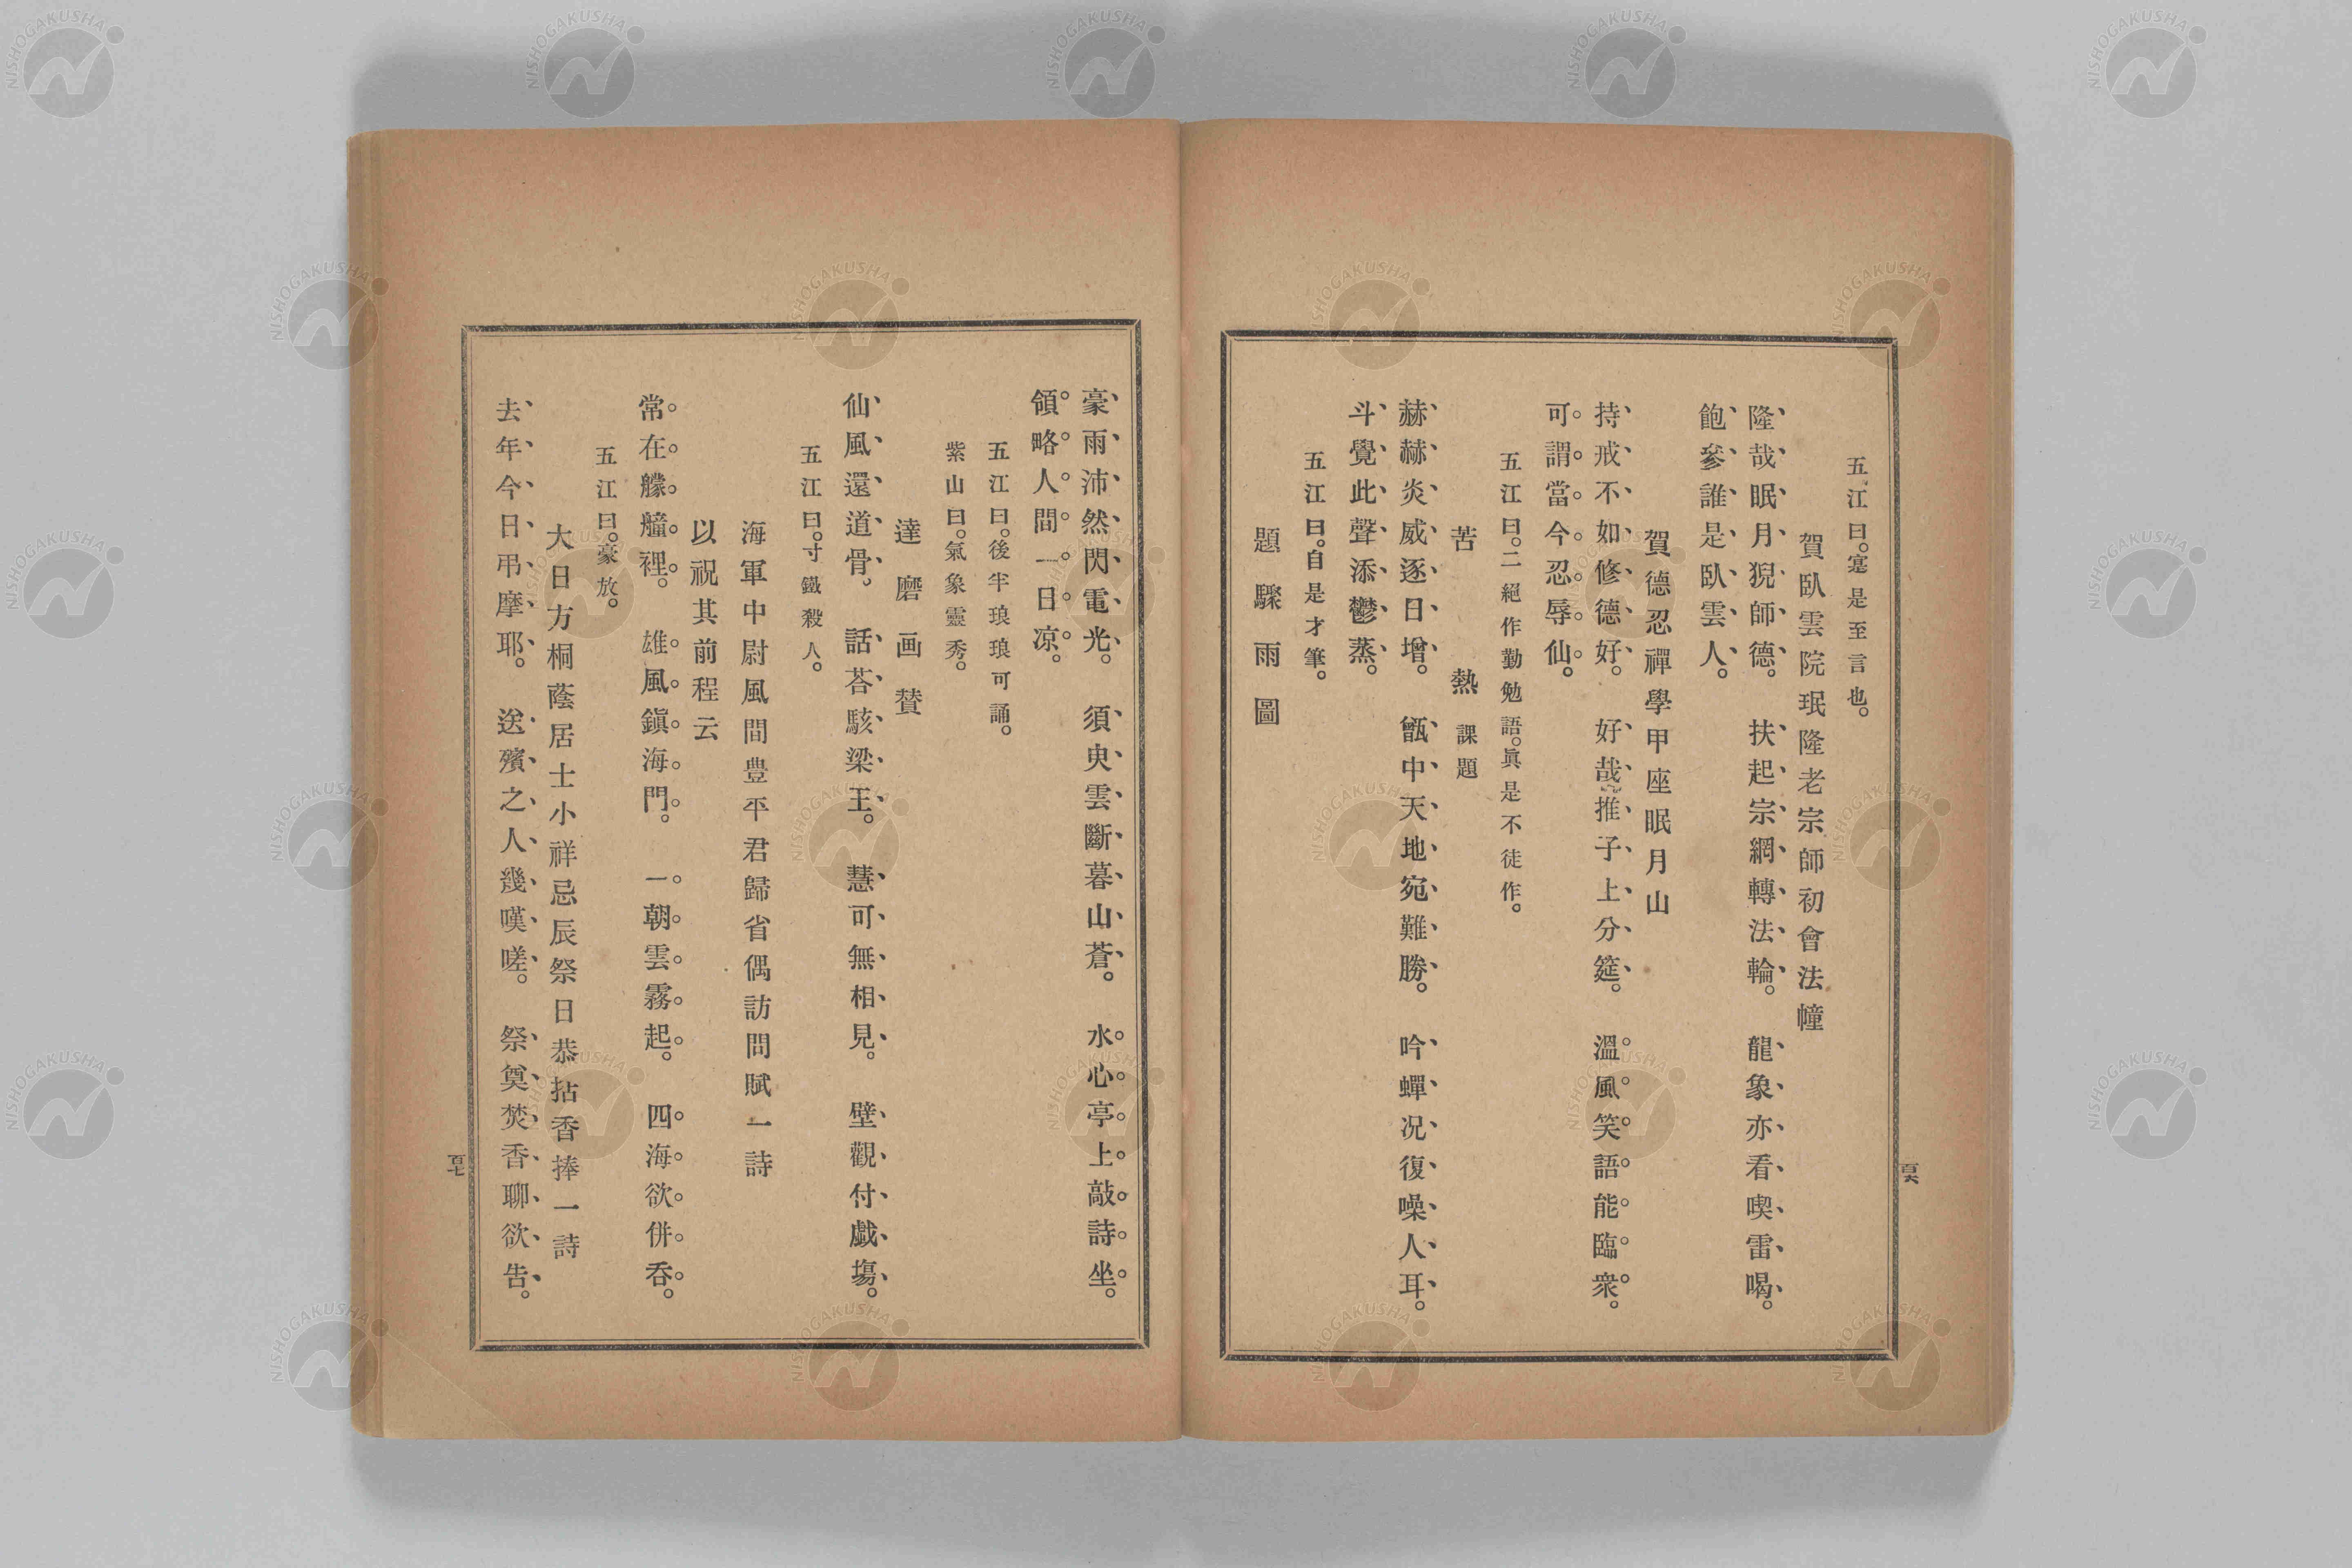 五江曰。寔是至言也。
賀臥雲院珉隆老宗師初會法幢
隆哉眠月猊師德。扶起宗網轉法輪。龍象亦看喫雷喝。
飽參誰是臥雲人。
賀德忍禪學甲座眠月山
持戒不如修德好。好哉推子上分筵。溫風笑語能臨衆。
可謂當今忍辱仙。
五江曰。二絕作勤勉語。眞是不徒作。
苦熱 課題
赫赫炎威逐日增。甑中天地宛難勝。吟蟬況復噪人耳。
斗覺此聲添鬱蒸。
五江曰。自是才筆。
題驟雨圖
百六
豪雨沛然閃電光。須臾雲斷暮山蒼。水心亭上敲詩坐。
領略人間一日凉。
五江曰。後半琅琅可誦。
紫山曰。氣象靈秀。
達磨画賛
仙風還道骨。話荅駭梁王。慧可無相見。壁觀付戯塲。
五江曰。寸鐵殺人。
海軍中尉風間豊平君歸省偶訪問賦一詩
以祝其前程云
常在艨艟裡。雄風鎭海門。一朝雲霧起。四海欲併呑。
五江曰。豪放。
大日方桐蔭居士小祥忌辰祭日恭拈香捧一詩
去年今日弔摩耶。送殯之人幾嘆嗟。祭奠焚香聊欲吿。
百七
NISHOGAKUSHA